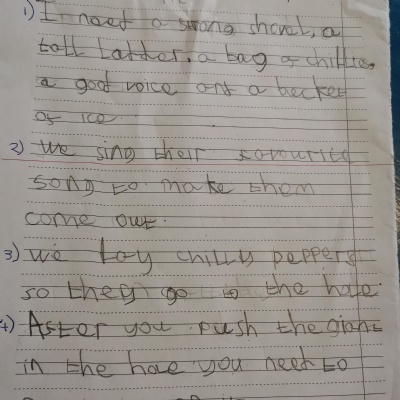 1) I need a strong shovel, a
tall Ladder, a bag of chillies,
a good voice and a becket
of ice
2) we sing their favourite
song to make them
come out.
3) we lay chilly peppers
so they go to the hole.
4) After you push the giant
in the hole you need to